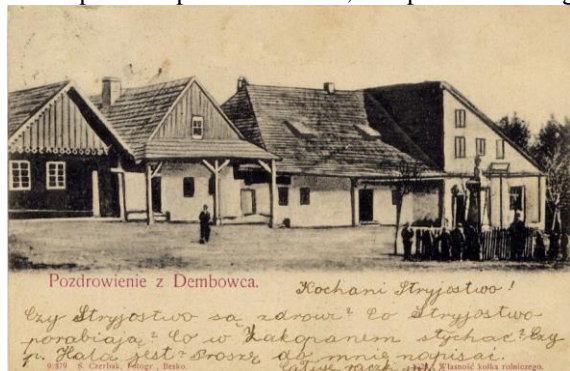 Pozdrowienie z Dembowca.
Kochani Stryjostwo!
Czy Stryjostwo są zdrowi? Co Stryjostwo
porabiają? Co w Zakopanem słychać? Czy
p. Hala jest? Proszę do mnie napisać.
Całuję rączki
91879 S. Czerbak, Fotogr., Besko.
Własność kółka rolniczego.